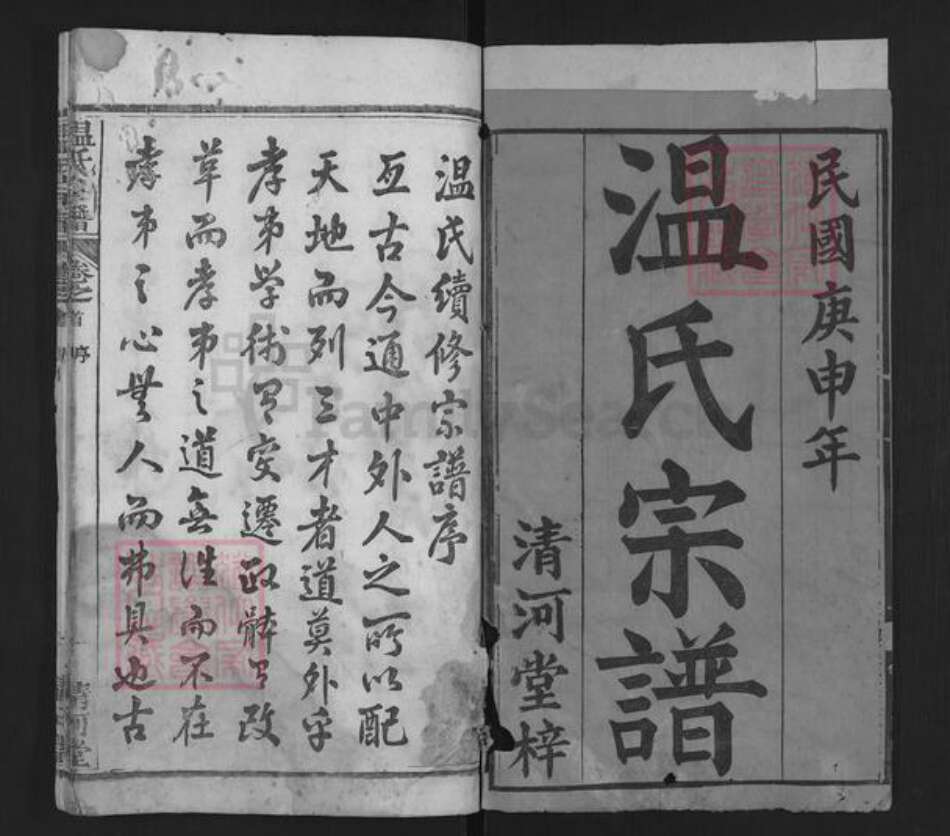 民國庚申年
温氏宗譜
清河堂梓
温氏續修宗譜序
亙古今通中外人之所以配
天地而列三才者道莫外乎
孝弟学術有变遷政体有改
革而孝弟之道無往而不在
孝弟之心無人而弗具也古
温氏宗譜
卷之首
序
清河堂
FamilySearch